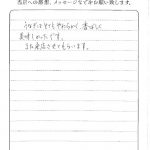 当店への感想、メッセージなどをお願い致します。
うなぎはとてもやわらかく、香ばしく
美味しかったです。
また来店させてもらいます。